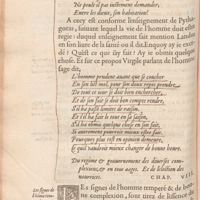 Ne puisse il pas iustement demander,
Entre les dieux, son habitation?
A cecy est conforme l'enseignement de Pytha-
goras, suiuant lequel la vie de l'homme doit estre
regie: duquel enseignement fait mention
en son liure de la santé ou il dit. Enquoy ay ie excé-
dé? Qu'est ce que i'ay fait? Ay ie obmis quelque
chose? Et sur ce propos Virgile parlant de l'homme
sage dit,
L'homme prudent auant que se coucher
En son lict mol, pour son doux repos prendre,
De tout ce iour se doit bien rechercher,
Et de son fait se doit bon compte rendre,
S'il ha passé loisirs de raison,
Et s'il ha fait le tout en sa saison,
S'il ha obmis quelque chose en son fait,
Si autrement pourroit mieux estre fait.
Pourquoy plus est en opinion
Ce qui vaudroit mieux changer de bonne heure.
Du regime & gouuernement des diuerses comple-
xions, & en tous aages. Et de lesion des
nourrices. CHAP. VIII.
Les signes de
l'homme tem-
LEs signes de l'homme temperé & de bon-
ne complexion, sont tirez de